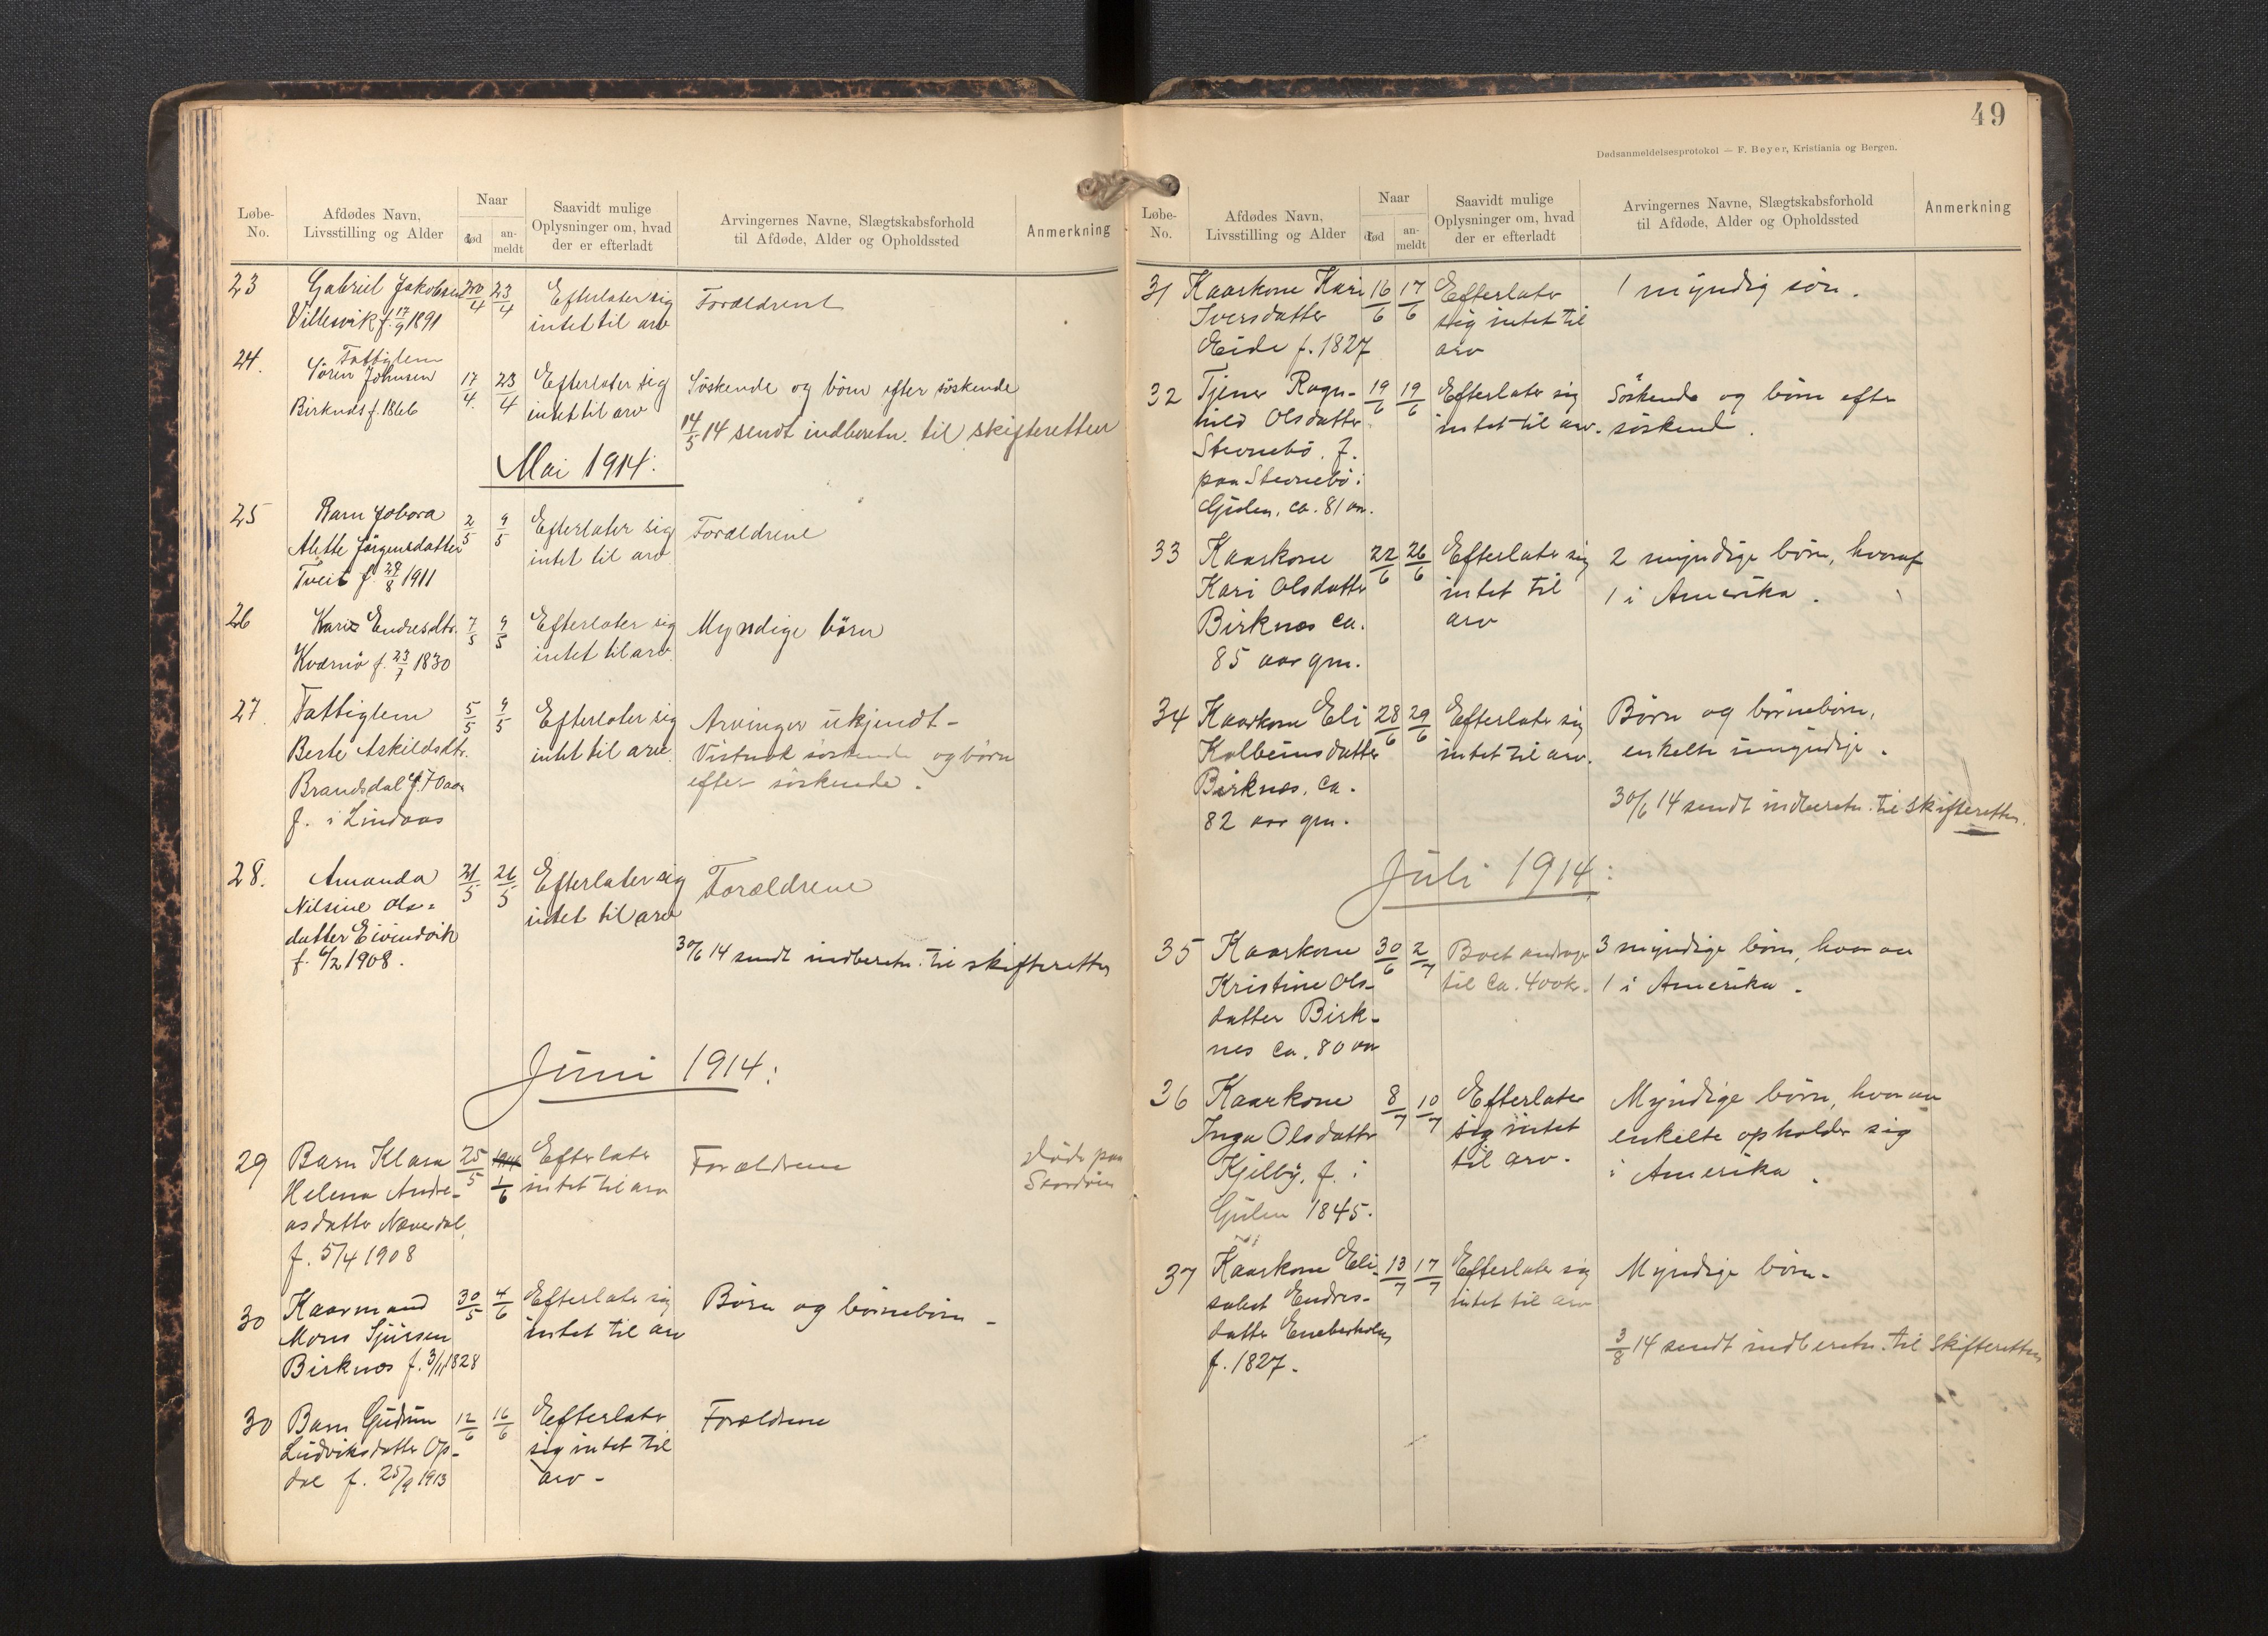 Løbe-
No.
Afdødes Navn,
Livsstilling og Alder
Naar
død
an-
meldt
Saavidt mulige
Oplysninger om, hvad
der er efterladt
Arvingernes Navne, Slægtskabsforhold
til Afdøde, Alder og Opholdssted
Anmerkning
23
Gabriel Jakobsen
Villesvik f. 17/9 1891
20/4
23/4
Efterlater sig
intet til arv
Forældrene
24.
Fattiglem
Sören Johnsen
Birknes f. 1866
17/4.
23/4
Efterlater sig
intet til arv
Söskende og börn efter söskende
14/5 14 sendt indberetn. til skifteretten
Mai 1914.
25
Barn
Alette Jörgensdatter
Tveit f. 29/8 1911
2/5
9/5
Efterlater sig
intet til arv
Forældrene
26
Kari Endresdtr.
Kversö f. 23/7 1830
7/5
9/5
Efterlater sig
intet til arv.
Myndige börn
27.
Fattiglem
Berte Askildsdtr.
Brandsdal f. 70 aar
f. i Lindaas
5/5
9/5
Efterlater sig
intet til arv.
Arvinger ukjendt -
Vistnok söskende og börn
efter söskende.
28.
Amanda
Nilsine Ols-
datter Eivindvik
f. 6/2 1908.
21/5
26/5
Efterlater sig
intet til arv
Forældrene
30/6 14 sendt indberetn. til skifteretten
Juni 1914:
29
Barn Klara
Helena Andre-
asdatter Næverdal,
f. 5/4 1908
25/5
1/6
Efterlater
intet til arv
Forældrene
döde paa
30
Kaarmand
Mons Sjursen
Birknes f. 3/11 1828
30/5
4/6
Efterlater sig
intet til arv
Börn og börnebörn -
30
Barn Gudrun
Ludviksdatter Op-
dal f. 25/9 1913
12/6
16/6
Efterlater
sig intet til
arv -
Forældrene
49
Dødsanmeldelsesprotokol — F. Beyer, Kristiania og Bergen.
Løbe-
No.
Afdødes Navn,
Livsstilling og Alder
Naar
død
an-
meldt
Saavidt mulige
Oplysninger om, hvad
der er efterladt
Arvingernes Navne, Slægtskabsforhold
til Afdøde, Alder og Opholdssted
Anmerkning
31
Kaarkone Kari
Iversdatter
Eide f. 1827
16/6
17/6
Efterlater
sig intet til
arv
1 myndig sön.
32
Tjener Ragn-
hild Olsdatter
Stevnebö. f.
paa Stevnebö i
Gulen, ca. 81 aar.
19/6
19/6
Efterlater sig
intet til arv.
Söskende og börn efter
söskende.
33
Kaarkone
Kari Olsdatter
Birknes ca.
85 aar gm.
22/6
26/6
Efterlater sig
intet til
arv
2 myndige börn, hvoraf
1 i Amerika.
34
Kaarkone Eli
Kolbeinsdatter
Birknes, ca.
82 aar gm.
28/6
29/6
Efterlater sig
intet til arv.
Börn og börnebörn,
enkelte umyndige.
30/6 14 sendt indberetn. til skifteretten.
Juli 1914:
35
Kaarkone
Kristine Ols-
datter Birk-
nes ca. 80 aar
30/6
2/7
Boet andrager
til ca. 400 kr.
3 myndige börn, hvorav
1 i Amerika.
36
Kaarkone
Inga Olsdatter
Kjelby, f. i
Gulen 1845.
8/7
10/7
Efterlater
sig intet
til arv.
Myndige börn, hvorav
enkelte opholder sig
i Amerika.
37
Kaarkone Eli-
sabet Endres-
datter Eneberholm
f. 1827.
13/7
17/7
Efterlater sig
intet til arv
Myndige börn.
3/8 14 sendt indberetn. til skifteretten